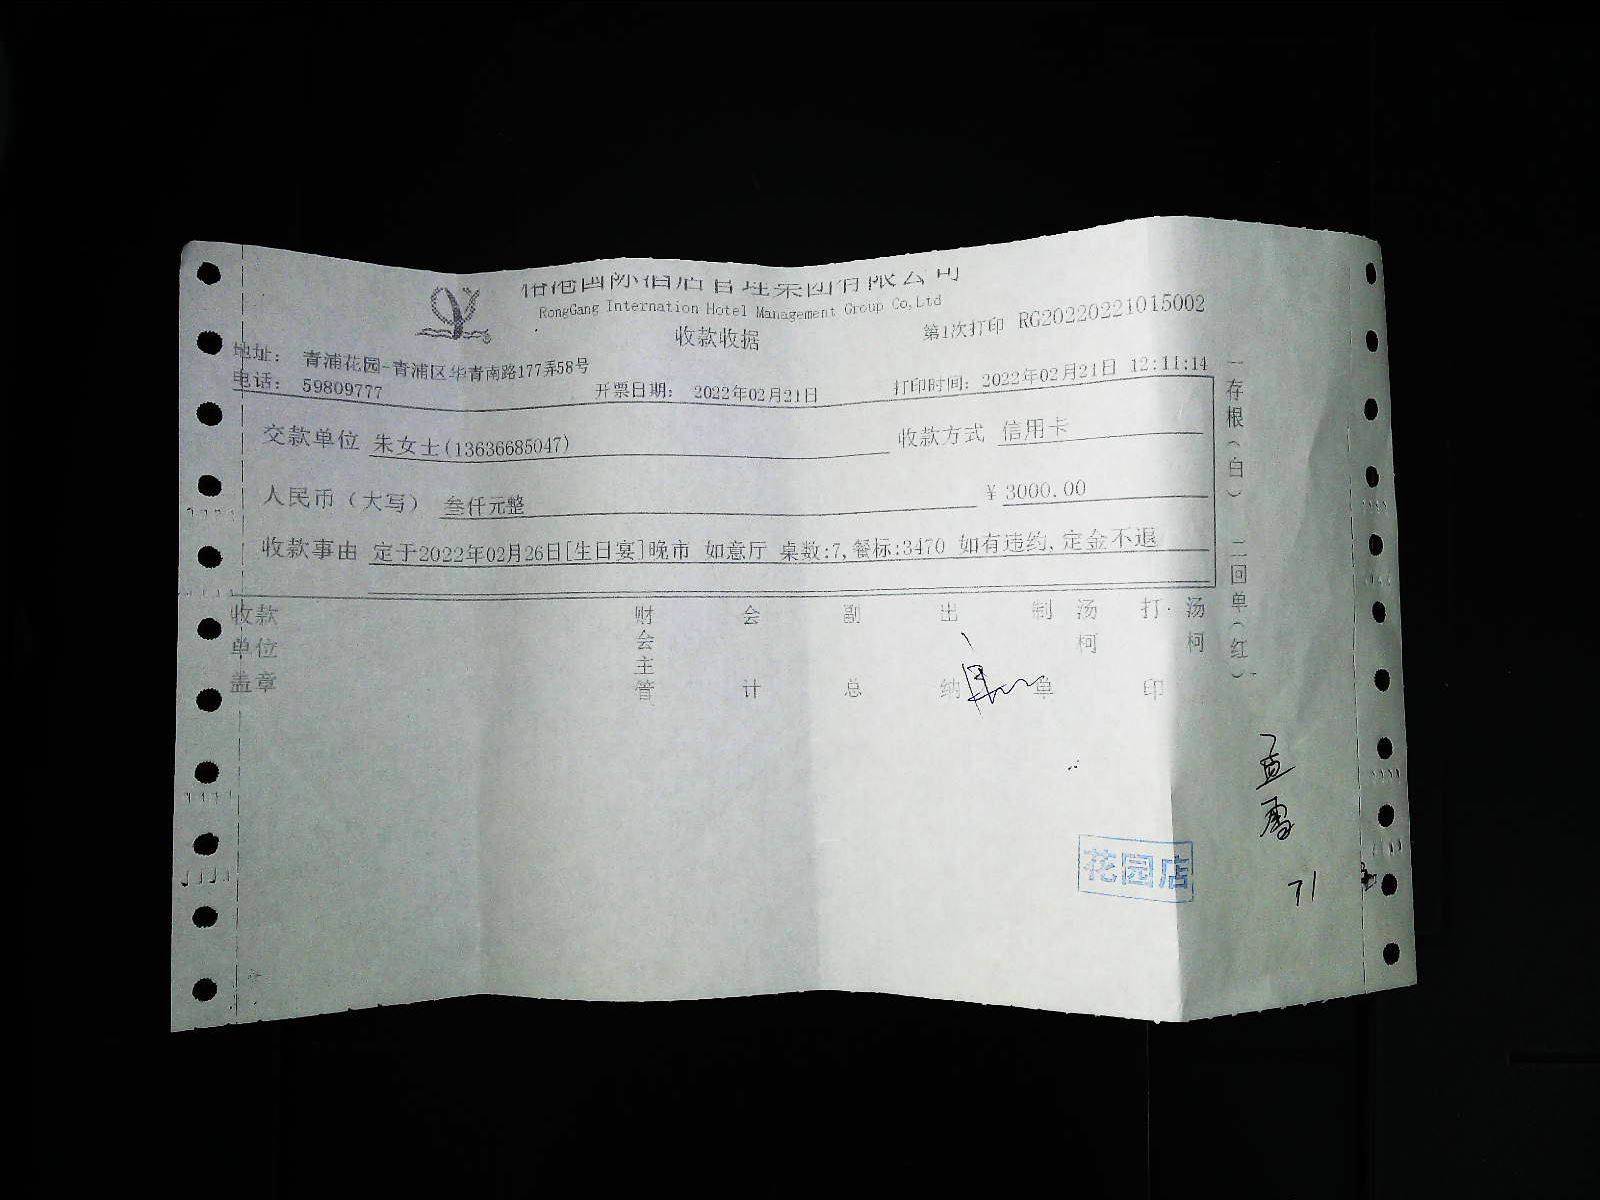 RongGang Internation Hotel Management Group Co,Ltd
收款收据
第1次打印 RG20220221015002
地址： 青浦花园-青浦区华青南路177弄58号
电话： 59809777
开票日期： 2022年02月21日
打印时间：2022年02月21日 12:11:14
交款单位 朱女士(13636685047)
收款方式 信用卡
人民币（大写） 叁仟元整
¥ 3000.00
收款事由 定于2022年02月26日[生日宴]晚市 如意厅 桌数:7,餐标:3470 如有违约,定金不退
收款单位盖章
财会主管
会计
副总
出纳
制单
汤柯
打印
汤柯
一存根（白） 二回单（红）
花园店
71